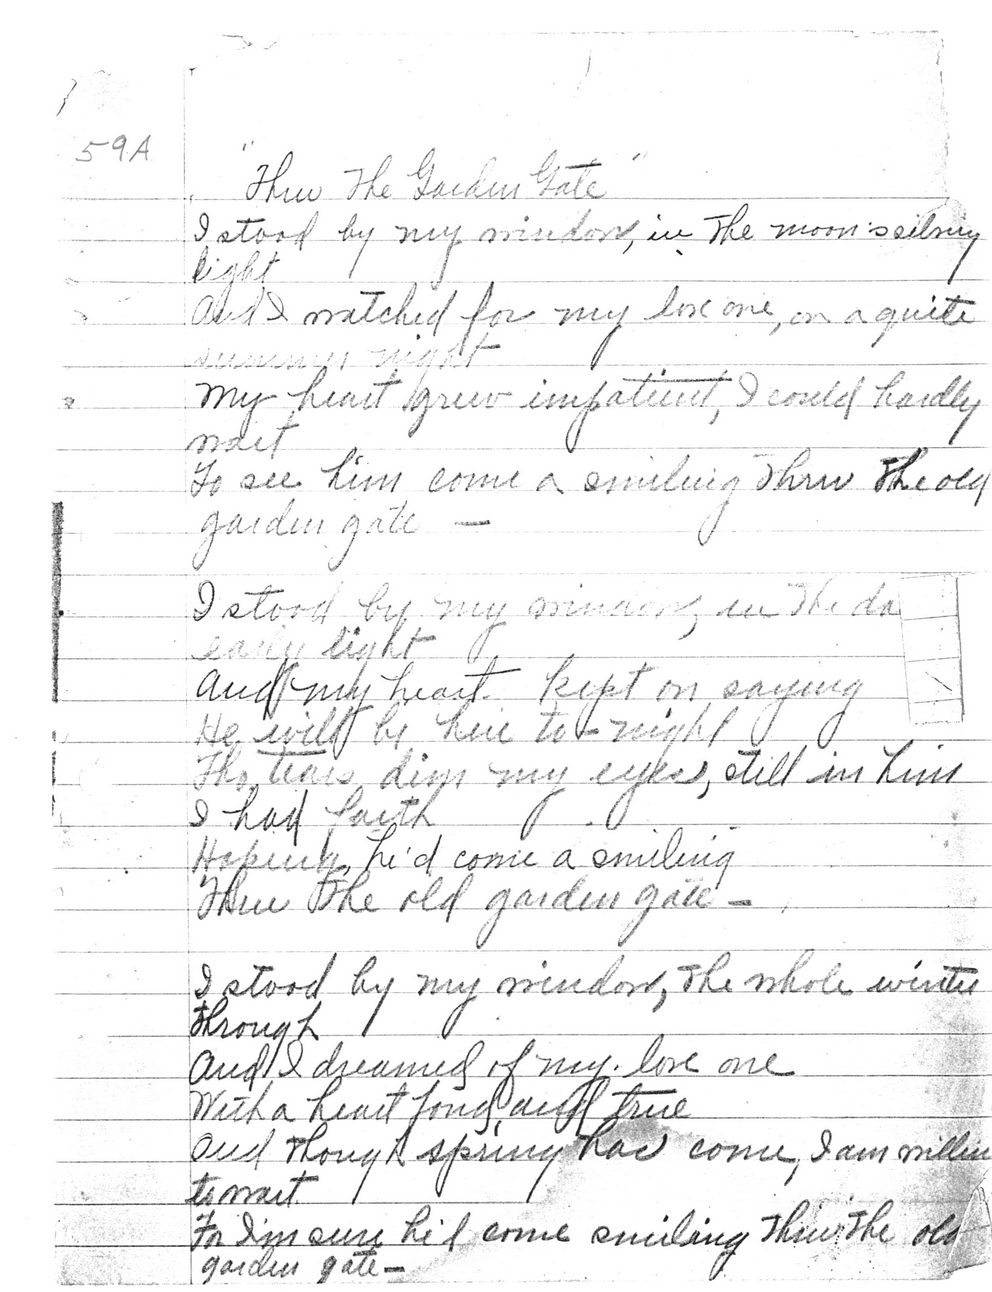 59A
"Thru The Garden Gate"
I stood by my window, in The moon's silvery
light
And I watched for my love one, on a quite
summer night
My heart grew impatient, I could hardly
wait
To see him come a smiling Thru The old
garden gate —
I stood by my window, in The da
early light
And my heart kept on saying
He will be here to-night
Tho tears dim my eyes, still in him
I had faith
Hoping, he'd come a smiling
Thru The old garden gate —
I stood by my window, The whole winter
Through
And I dreamed of my love one
With a heart fond and true
And Though spring has come, I am willin
to wait
For I'm sure he'd come smiling Thru The old
garden gate —